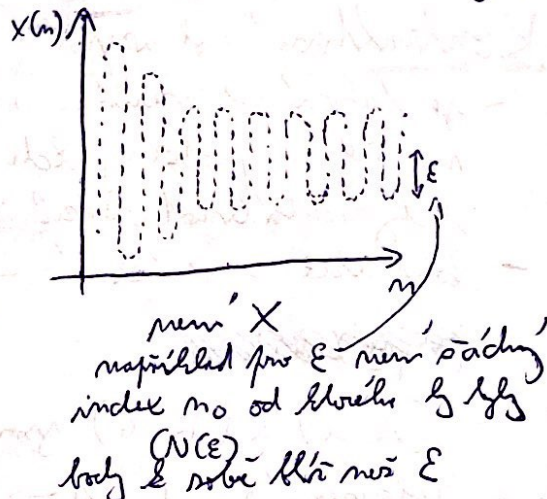 X(n)
ε
n
není X
například pro ε není žádný
index n₀ od kterého by byly
(N(ε))
body k sobě blíž než ε